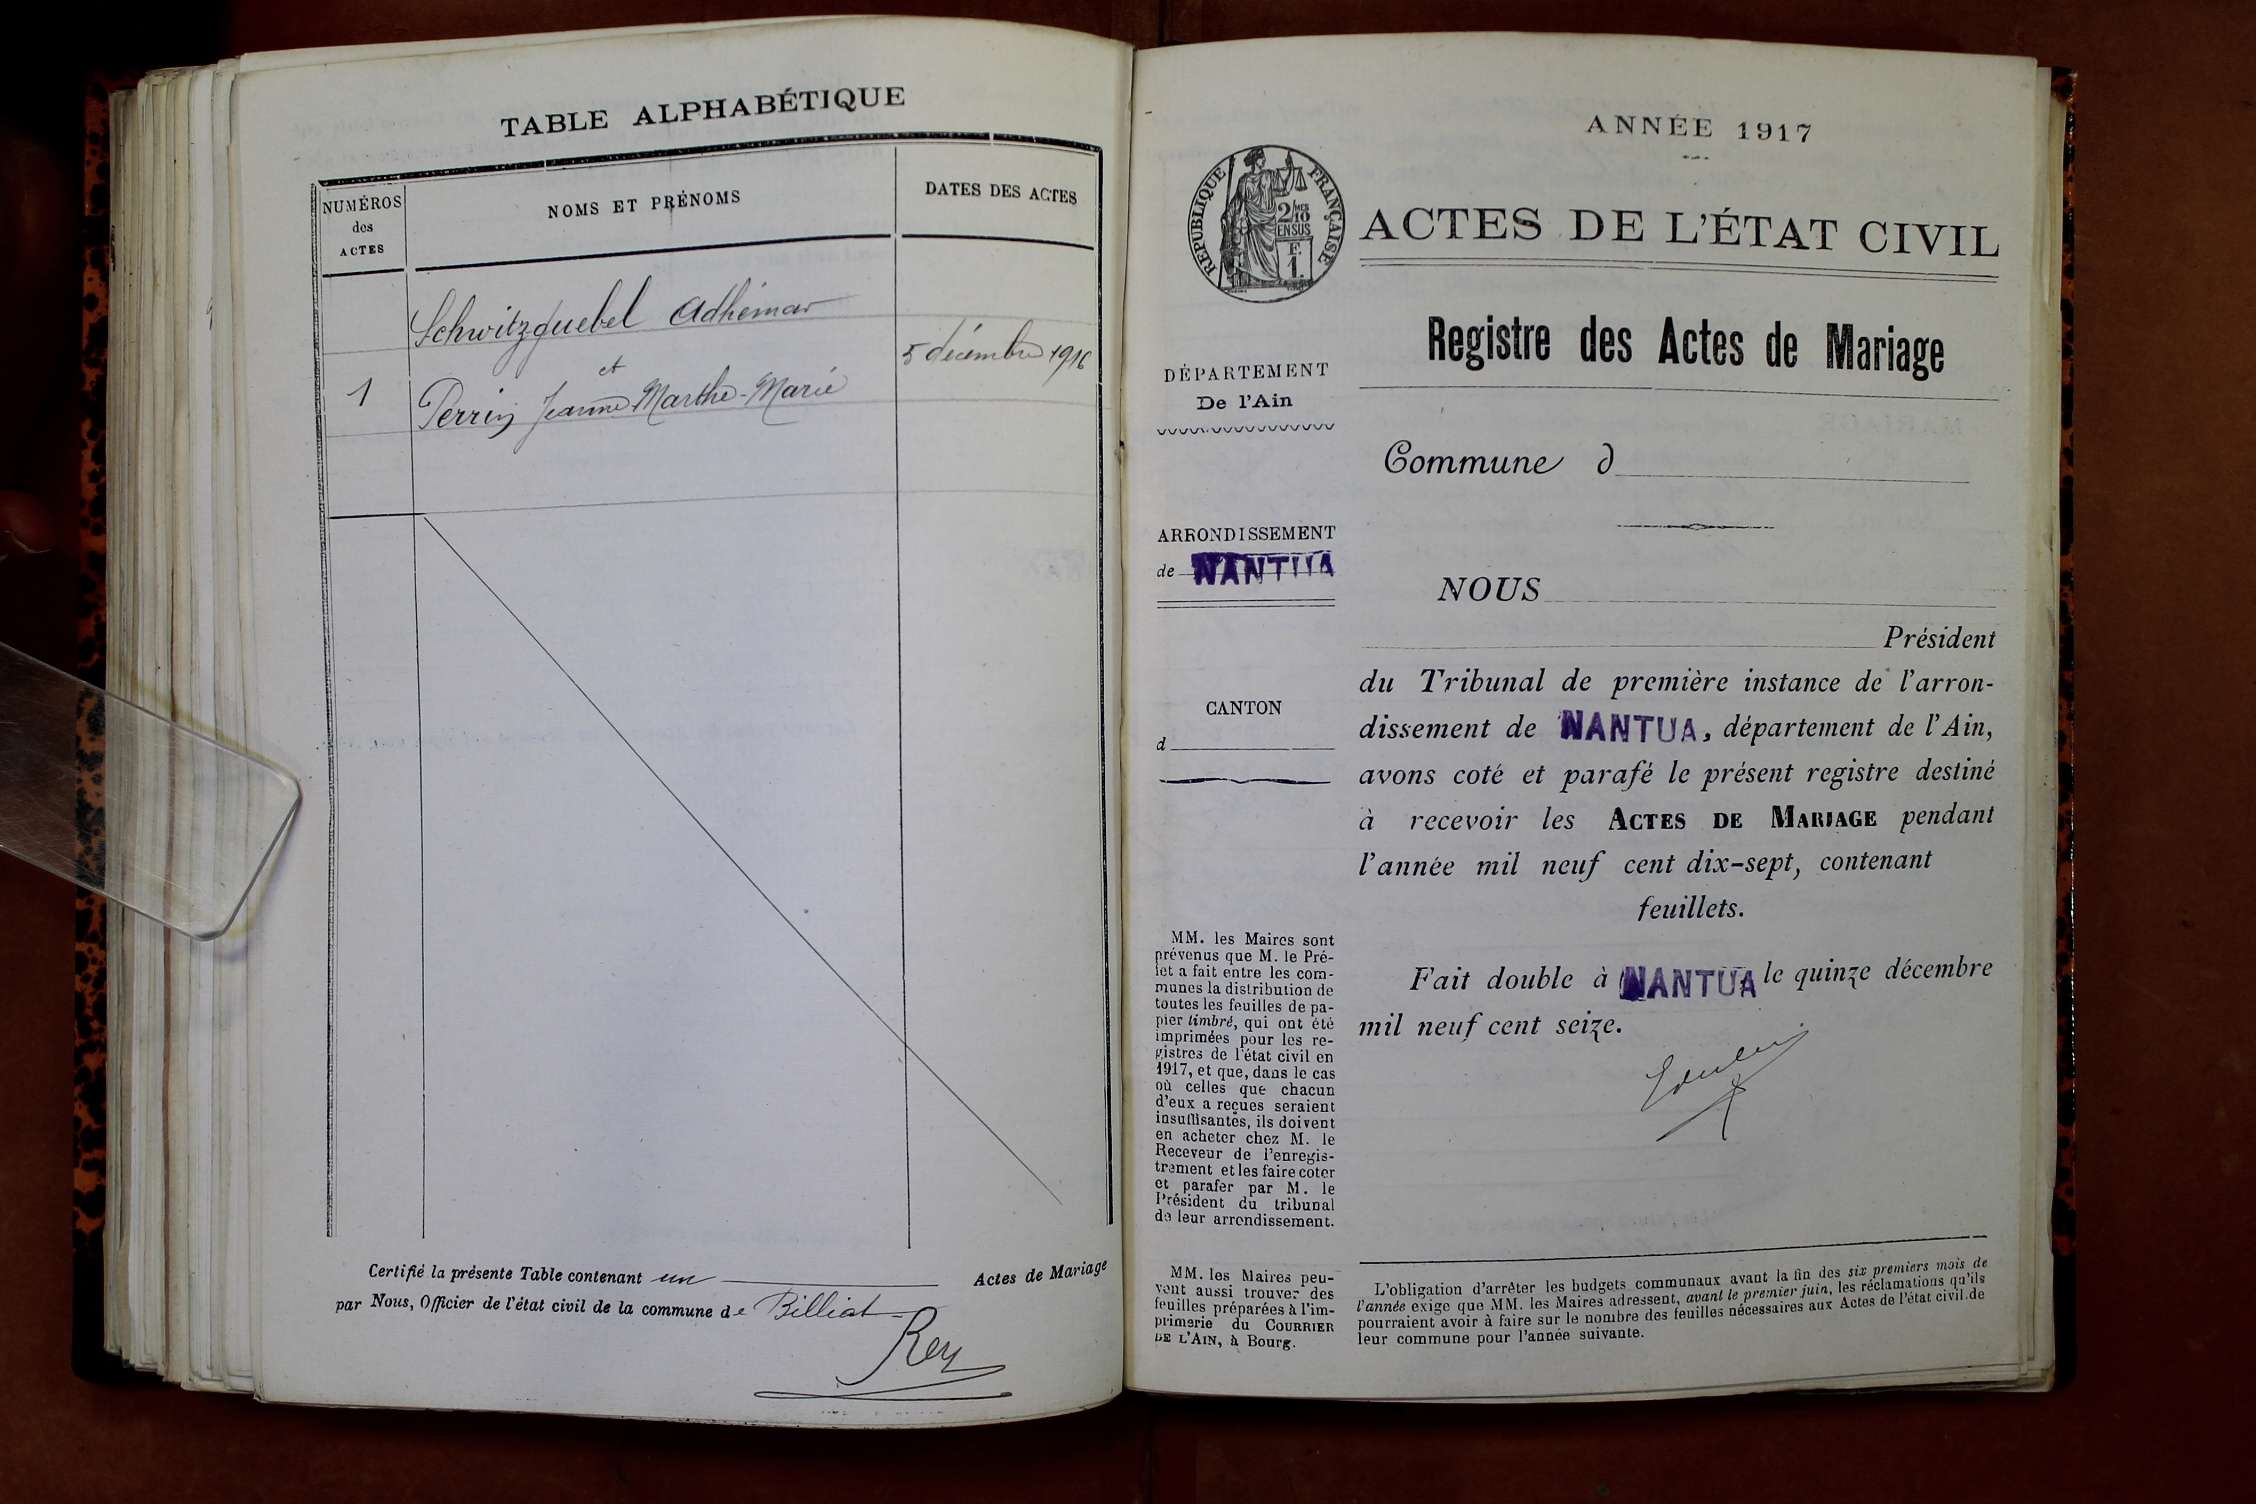 TABLE ALPHABÉTIQUE
NUMÉROS
des
ACTES
NOMS ET PRÉNOMS
DATES DES ACTES
Schwitzguebel Adhémar
et
1
Perrin Jeanne-Marthe-Marie
5 décembre 1916
Certifié la présente Table contenant un Actes de Mariage
par Nous, Officier de l'état civil de la commune de Billiat
Rey
ANNÉE 1917
RÉPUBLIQUE FRANÇAISE
2/10 MES
EN SUS
F.
1.
ACTES DE L'ÉTAT CIVIL
Registre des Actes de Mariage
DÉPARTEMENT
De l'Ain
Commune d
ARRONDISSEMENT
de NANTUA
NOUS
Président
du Tribunal de première instance de l'arron-
dissement de NANTUA, département de l'Ain,
avons coté et parafé le présent registre destiné
à recevoir les ACTES DE MARIAGE pendant
l'année mil neuf cent dix-sept, contenant
feuillets.
CANTON
d
Fait double à NANTUA le quinze décembre
mil neuf cent seize.
MM. les Maires sont
prévenus que M. le Pré-
fet a fait entre les com-
munes la distribution de
toutes les feuilles de pa-
pier timbré, qui ont été
imprimées pour les re-
gistres de l'état civil en
1917, et que, dans le cas
où celles que chacun
d'eux a reçues seraient
insuffisantes, ils doivent
en acheter chez M. le
Receveur de l'enregis-
trement et les faire coter
et parafer par M. le
Président du tribunal
de leur arrondissement.
MM. les Maires peu-
vent aussi trouver des
feuilles préparées à l'im-
primerie du COURRIER
DE L'AIN, à Bourg.
L'obligation d'arrêter les budgets communaux avant la fin des six premiers mois de
l'année exige que MM. les Maires adressent, avant le premier juin, les réclamations qu'ils
pourraient avoir à faire sur le nombre des feuilles nécessaires aux Actes de l'état civil de
leur commune pour l'année suivante.